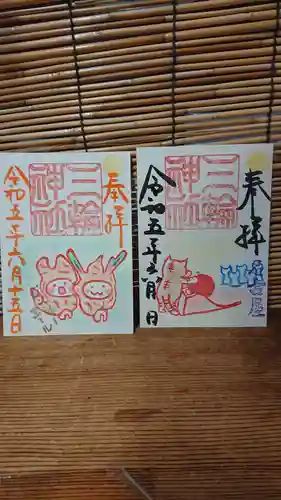 奉拝
三輪
神社
令和五年六月十五日
奉拝
三輪
神社
名古屋
令和五年
月
日